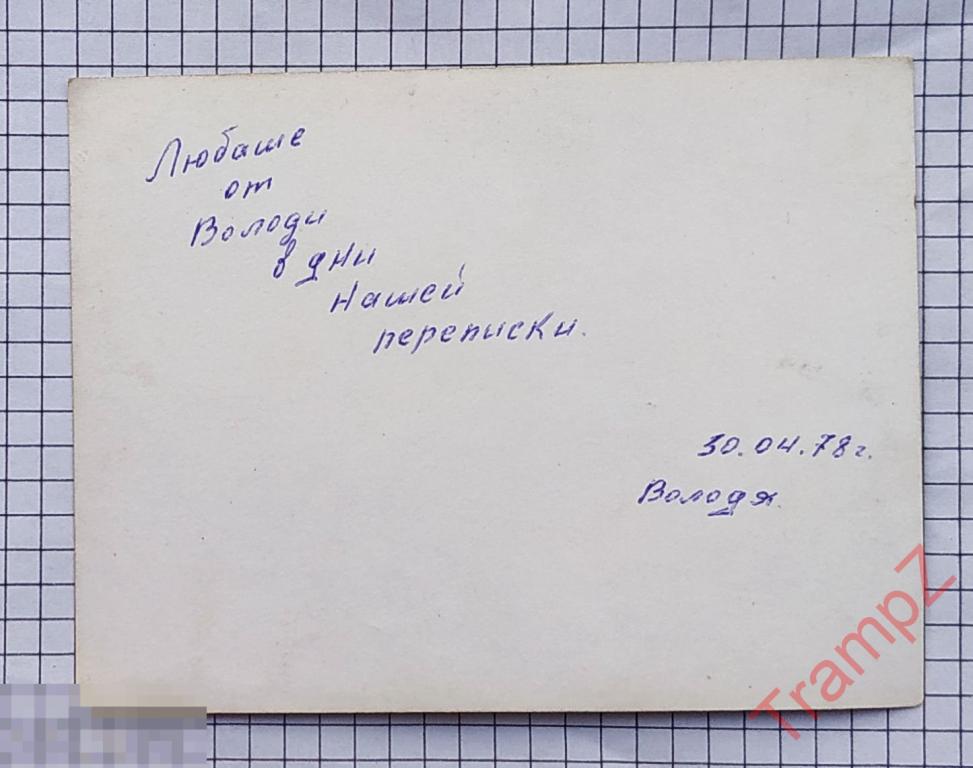 Любаше
от
Володи
в дни
нашей
переписки.
30.04.78 г.
Володя.
TrampZ